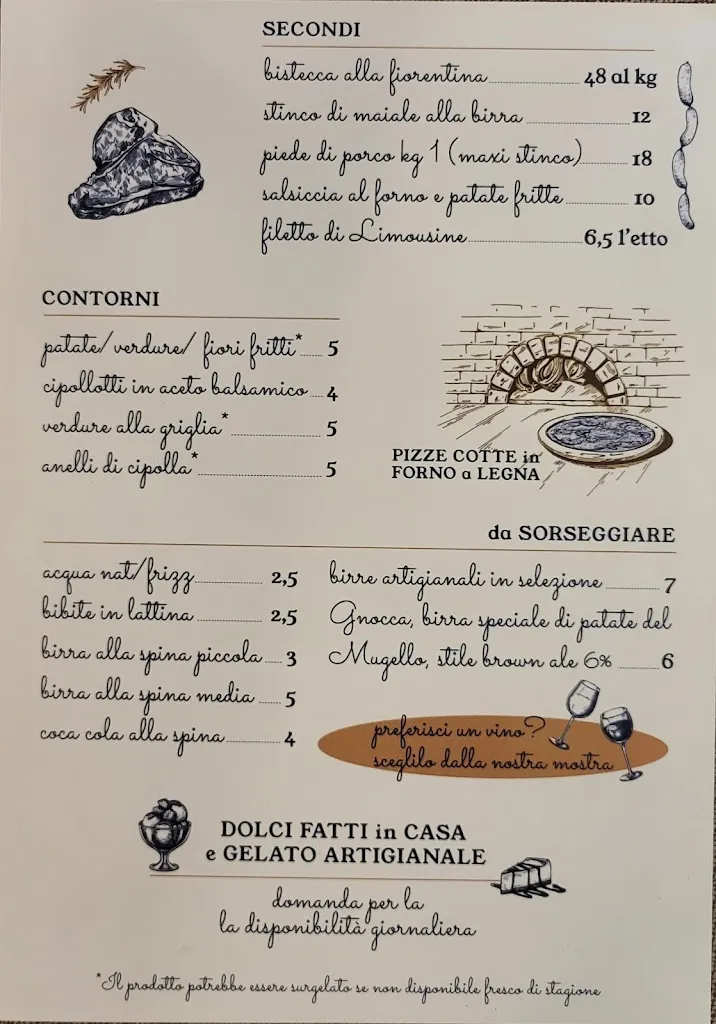 SECONDI
bistecca alla fiorentina 48 al kg
stinco di maiale alla birra 12
piede di porco kg 1 (maxi stinco) 18
salsiccia al forno e patate fritte 10
filetto di Limousine 6,5 l'etto
CONTORNI
patate/ verdure/ fiori fritti* 5
cipollotti in aceto balsamico 4
verdure alla griglia* 5
anelli di cipolla* 5
PIZZE COTTE in
FORNO a LEGNA
da SORSEGGIARE
acqua nat/frizz 2,5
bibite in lattina 2,5
birra alla spina piccola 3
birra alla spina media 5
coca cola alla spina 4
birre artigianali in selezione 7
Gnocca, birra speciale di patate del
Mugello, stile brown ale 6% 6
preferisci un vino?
sceglilo dalla nostra mostra
DOLCI FATTI in CASA
e GELATO ARTIGIANALE
domanda per la
la disponibilità giornaliera
*Il prodotto potrebbe essere surgelato se non disponibile fresco di stagione